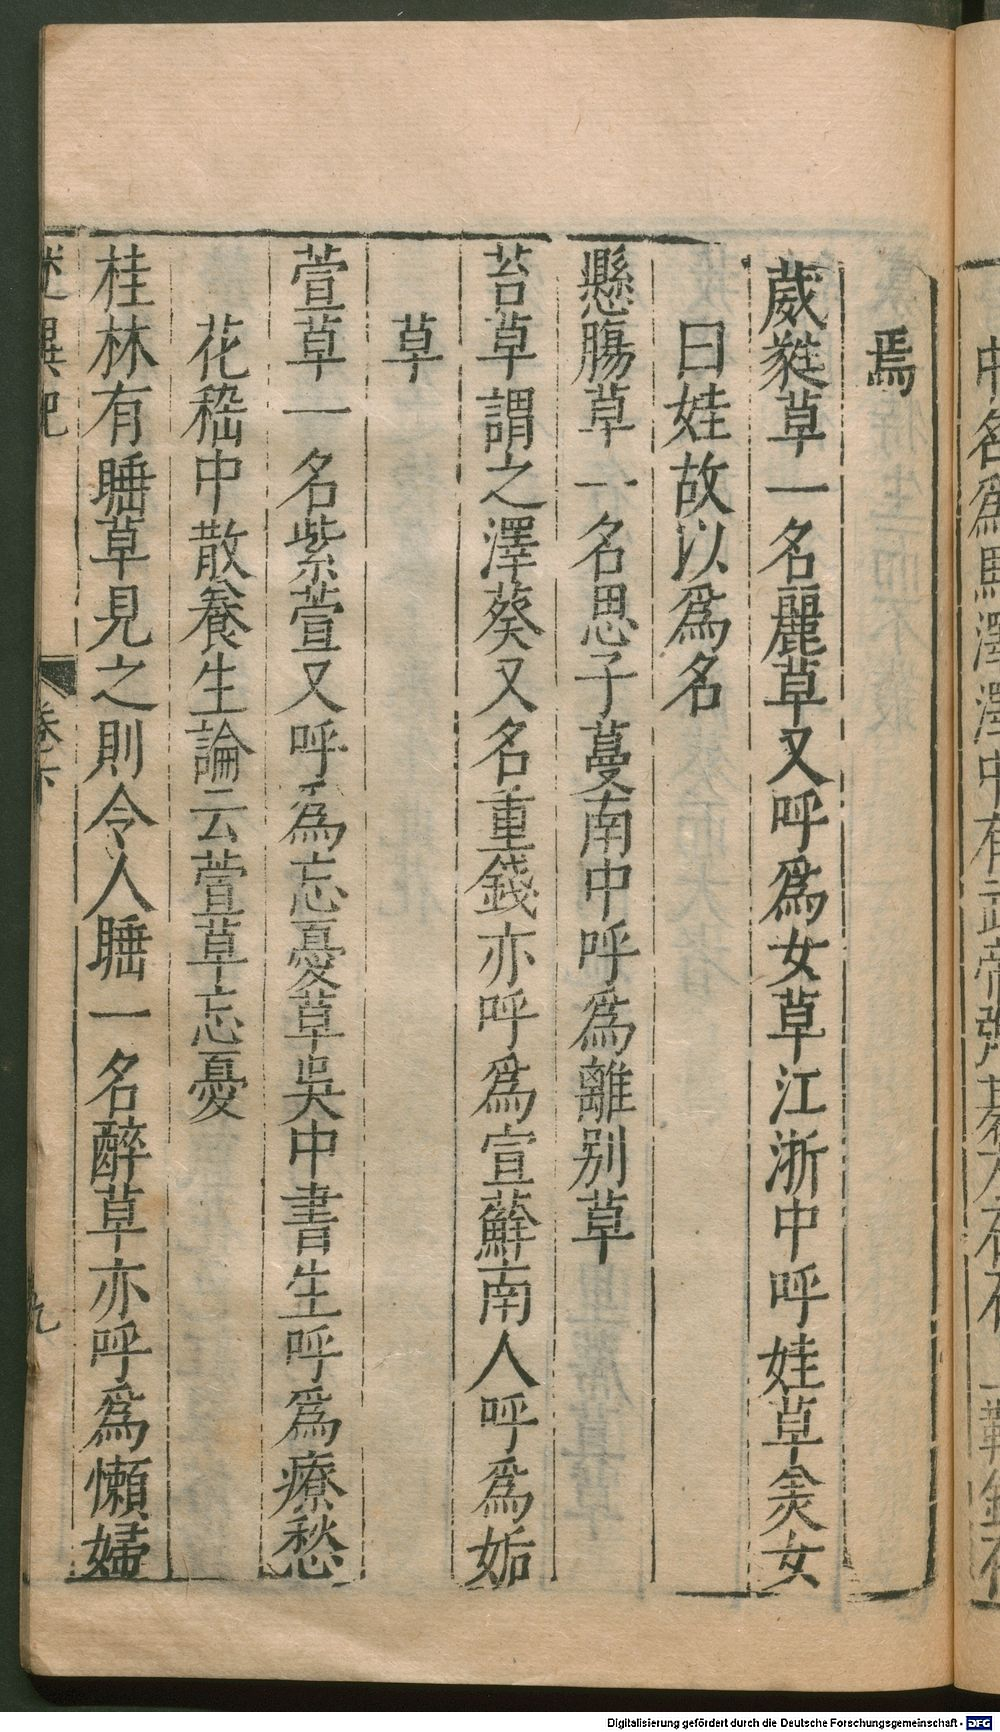 焉
葳蕤草一名麗草又呼爲女草江浙中呼娃草美女
曰娃故以爲名
懸腸草一名思子蔓南中呼爲離别草
苔草謂之澤葵又名重錢亦呼爲宣蘚南人呼爲姤
草
萱草一名紫萱又呼爲忘憂草吳中書生呼爲療愁
花嵇中散養生論云萱草忘憂
桂林有睡草見之則令人睡一名醉草亦呼爲懶婦
述異記
九
Digitalisierung gefördert durch die Deutsche Forschungsgemeinschaft - DFG